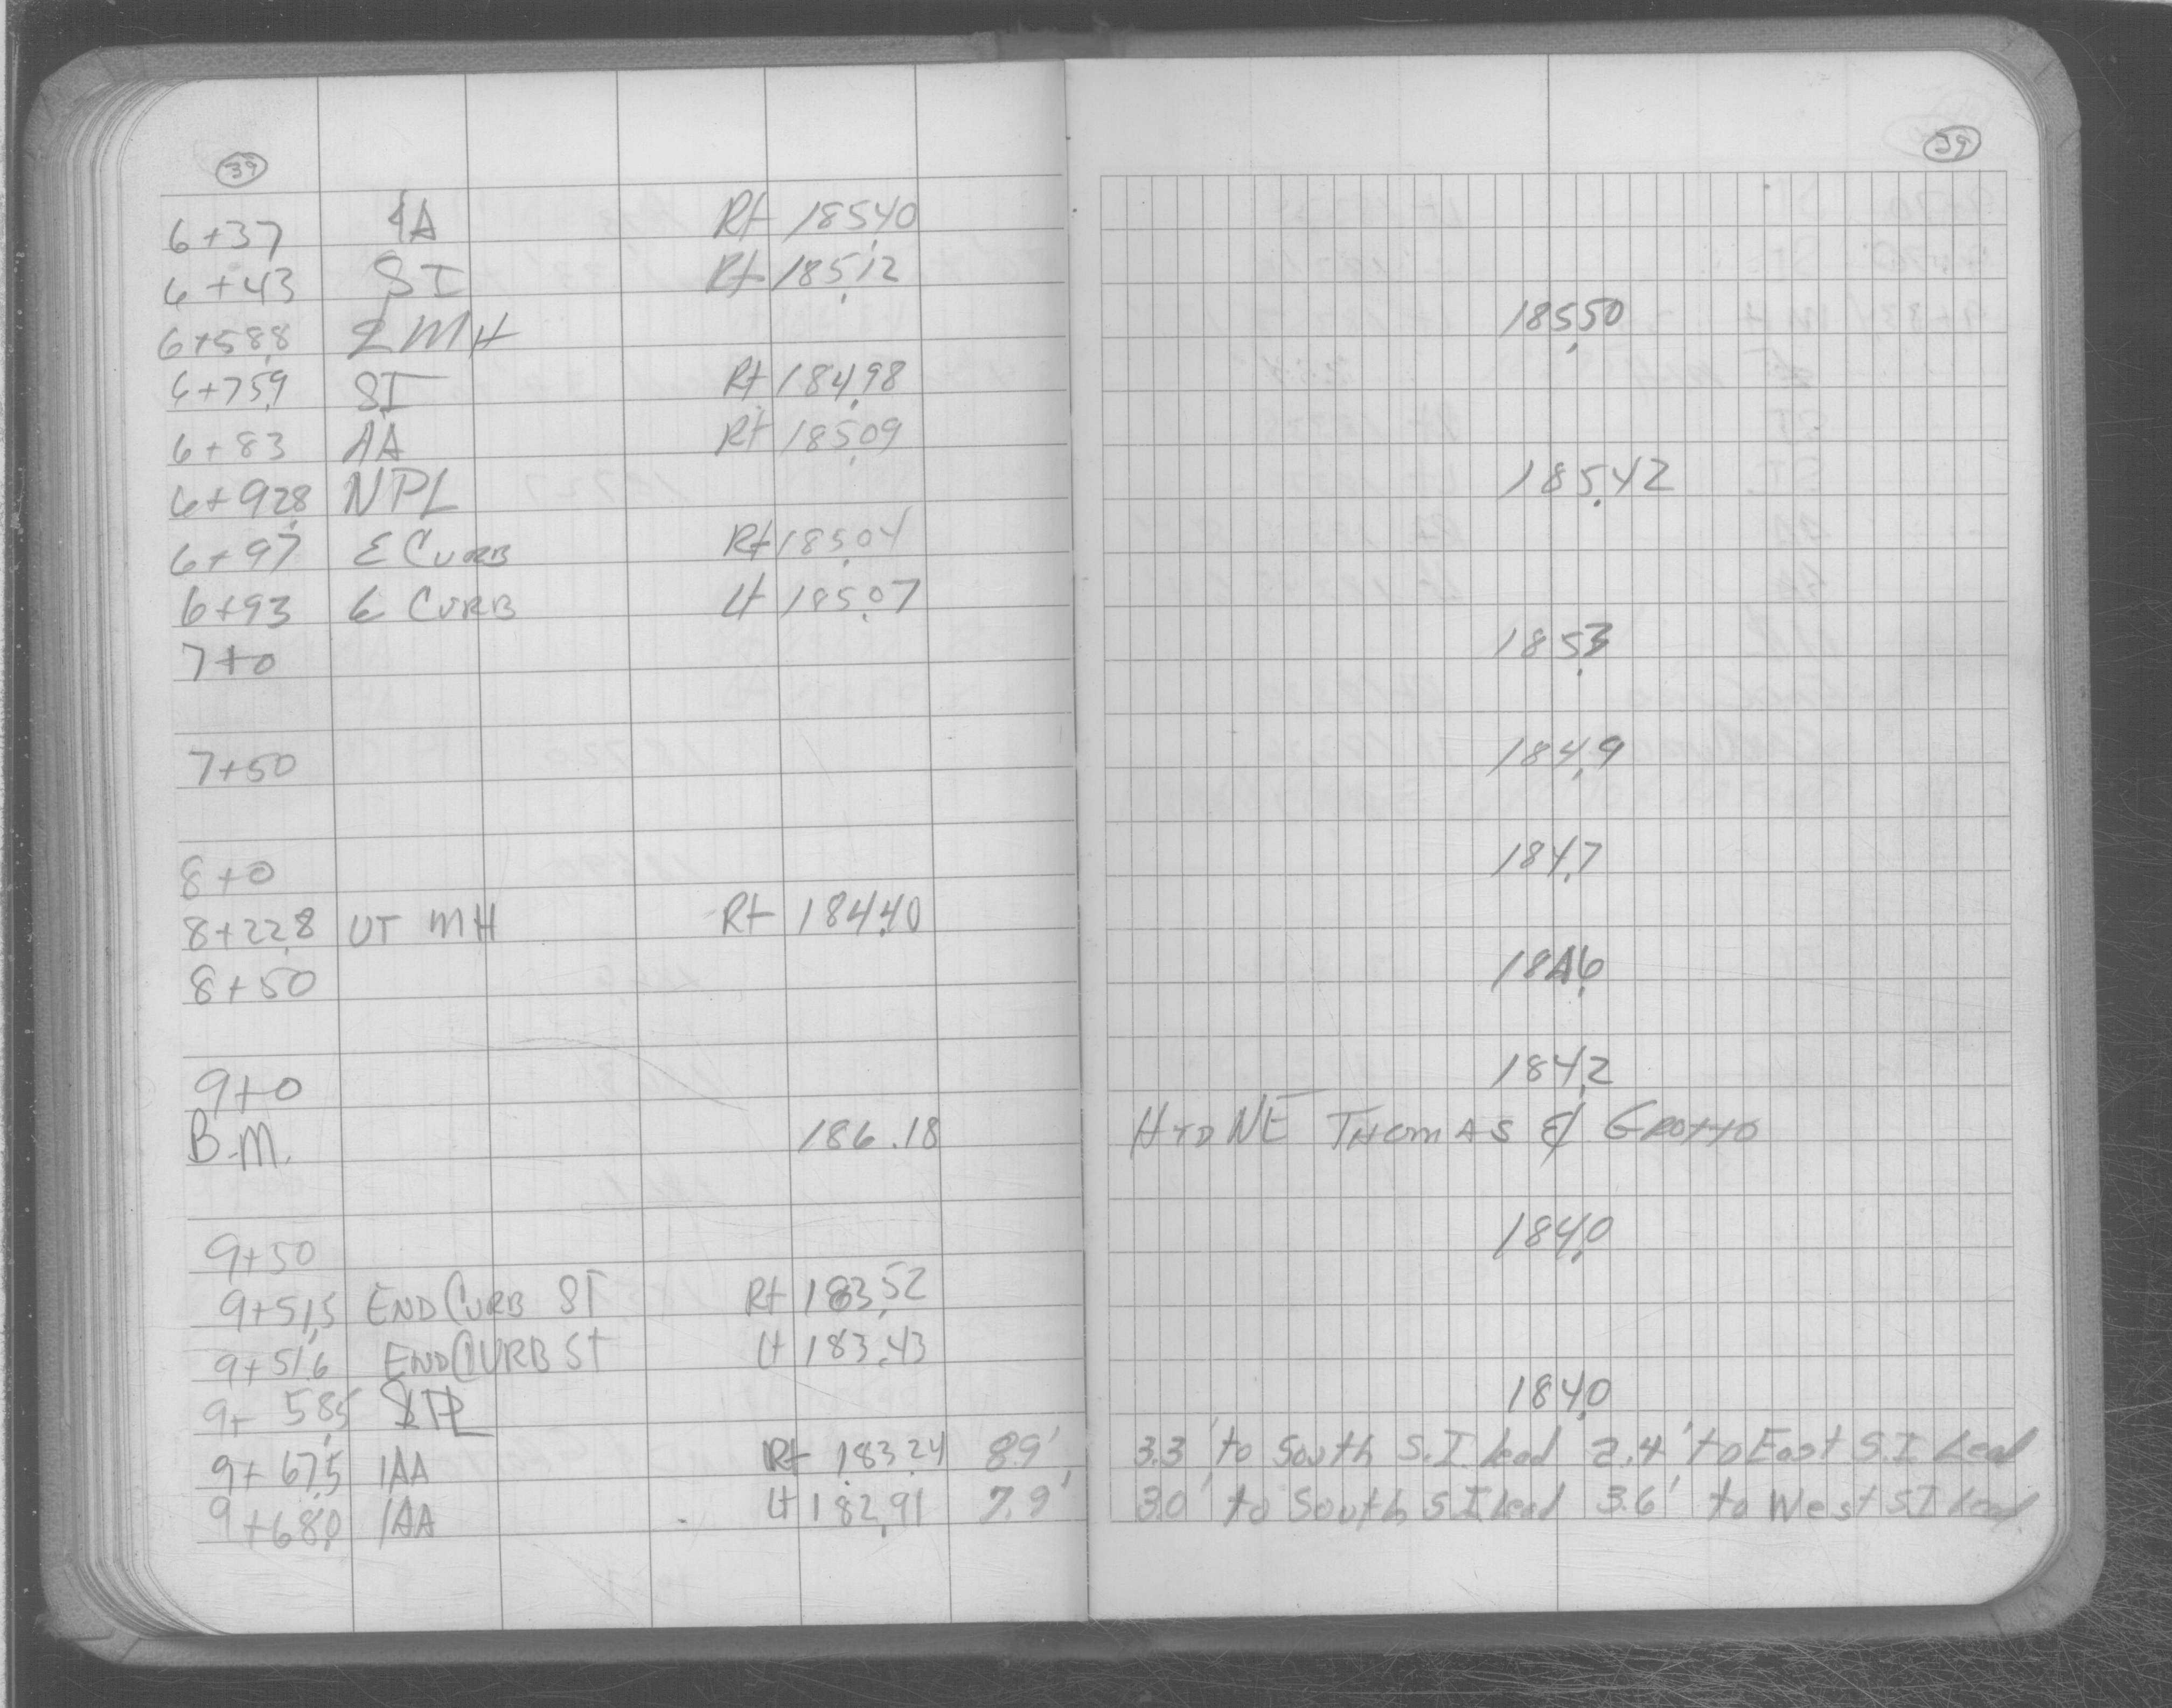 39 39
6+37 AA Rt 185.40
6+43 SI Rt 185.12
6+58.8 MH 185.50
6+75.9 SI Rt 184.98
6+83 AA Rt 185.09
6+92.8 NPL 185.42
6+97 E CURB Rt 185.04
6+93 E CURB Lt 185.07
7+0 185.3
7+50 184.9
8+0 184.7
8+22.8 UT MH Rt 184.40
8+50 184.6
9+0 184.2
B.M. 186.18 HYD NE THOMAS & GROTTO
9+50 184.0
9+51.5 END CURB ST Rt 183.52
9+51.6 END CURB St Lt 183.43
9+ 58.5 SPL 184.0
9+67.5 AA Rt 183.24 8.9' 3.3' to South S.I. Lead 2.4' to East S.I Lead
9+68.0 AA Lt 182.91 7.9' 3.0' to South S I Lead 3.6' to West S I Lead